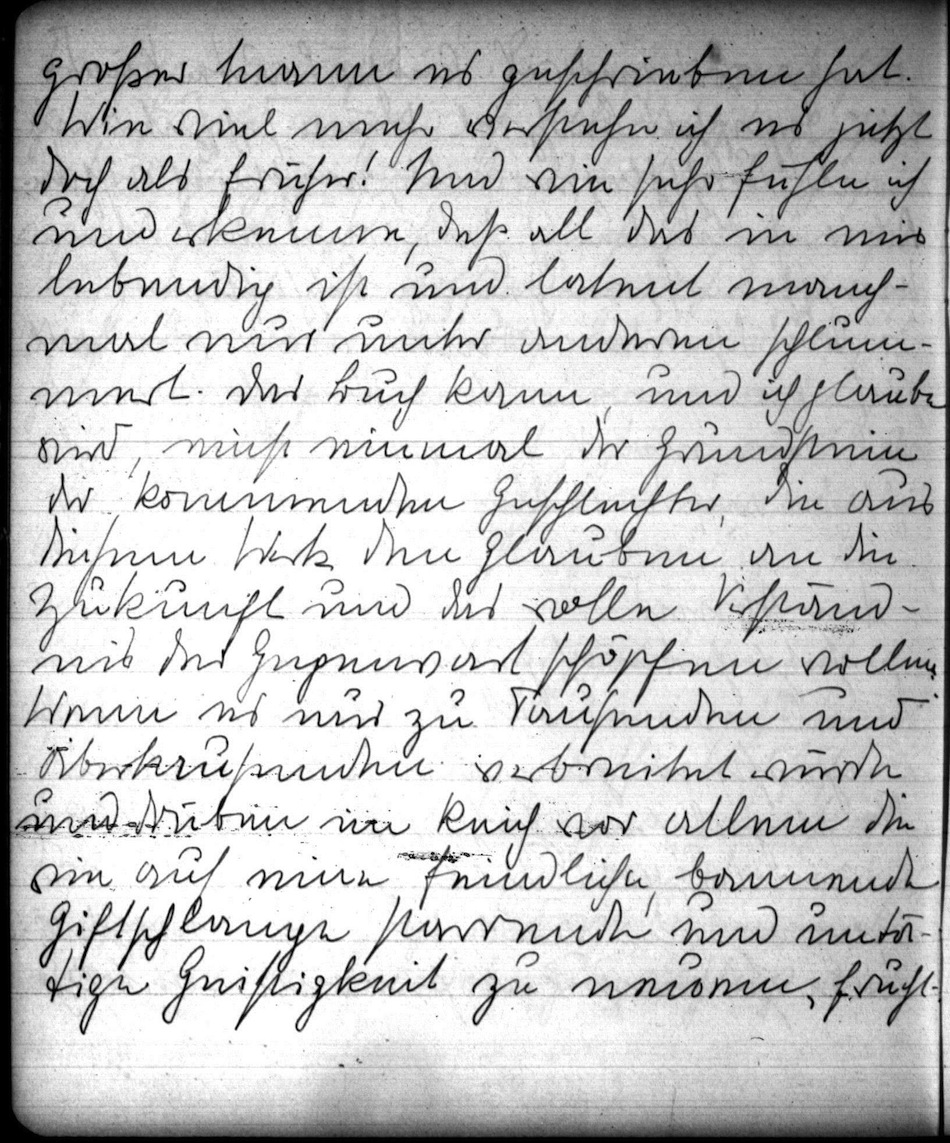 großer Mann es geschrieben hat.
Wie viel mehr verstehe ich es jetzt
doch als früher! Und wie sehr fühle ich
und erkenne, daß all das in mir
lebendig ist und latent manch-
mal nur unter anderem schlum-
mert. Das Buch kann, und ich glaube
wird, einst einmal der Grundstein
der kommenden Geschlechter, die aus
diesem Werk den Glauben an die
Zukunft und das volle Verständ-
nis der Gegenwart schöpfen wollen.
Wenn es nur zu Tausenden und
Abertausenden verbreitet würde
und drüben im Reich vor allem die
wie auf eine feindliche, bannende
Giftschlange starrende und untä-
tige Geistigkeit zu neuem, frucht-